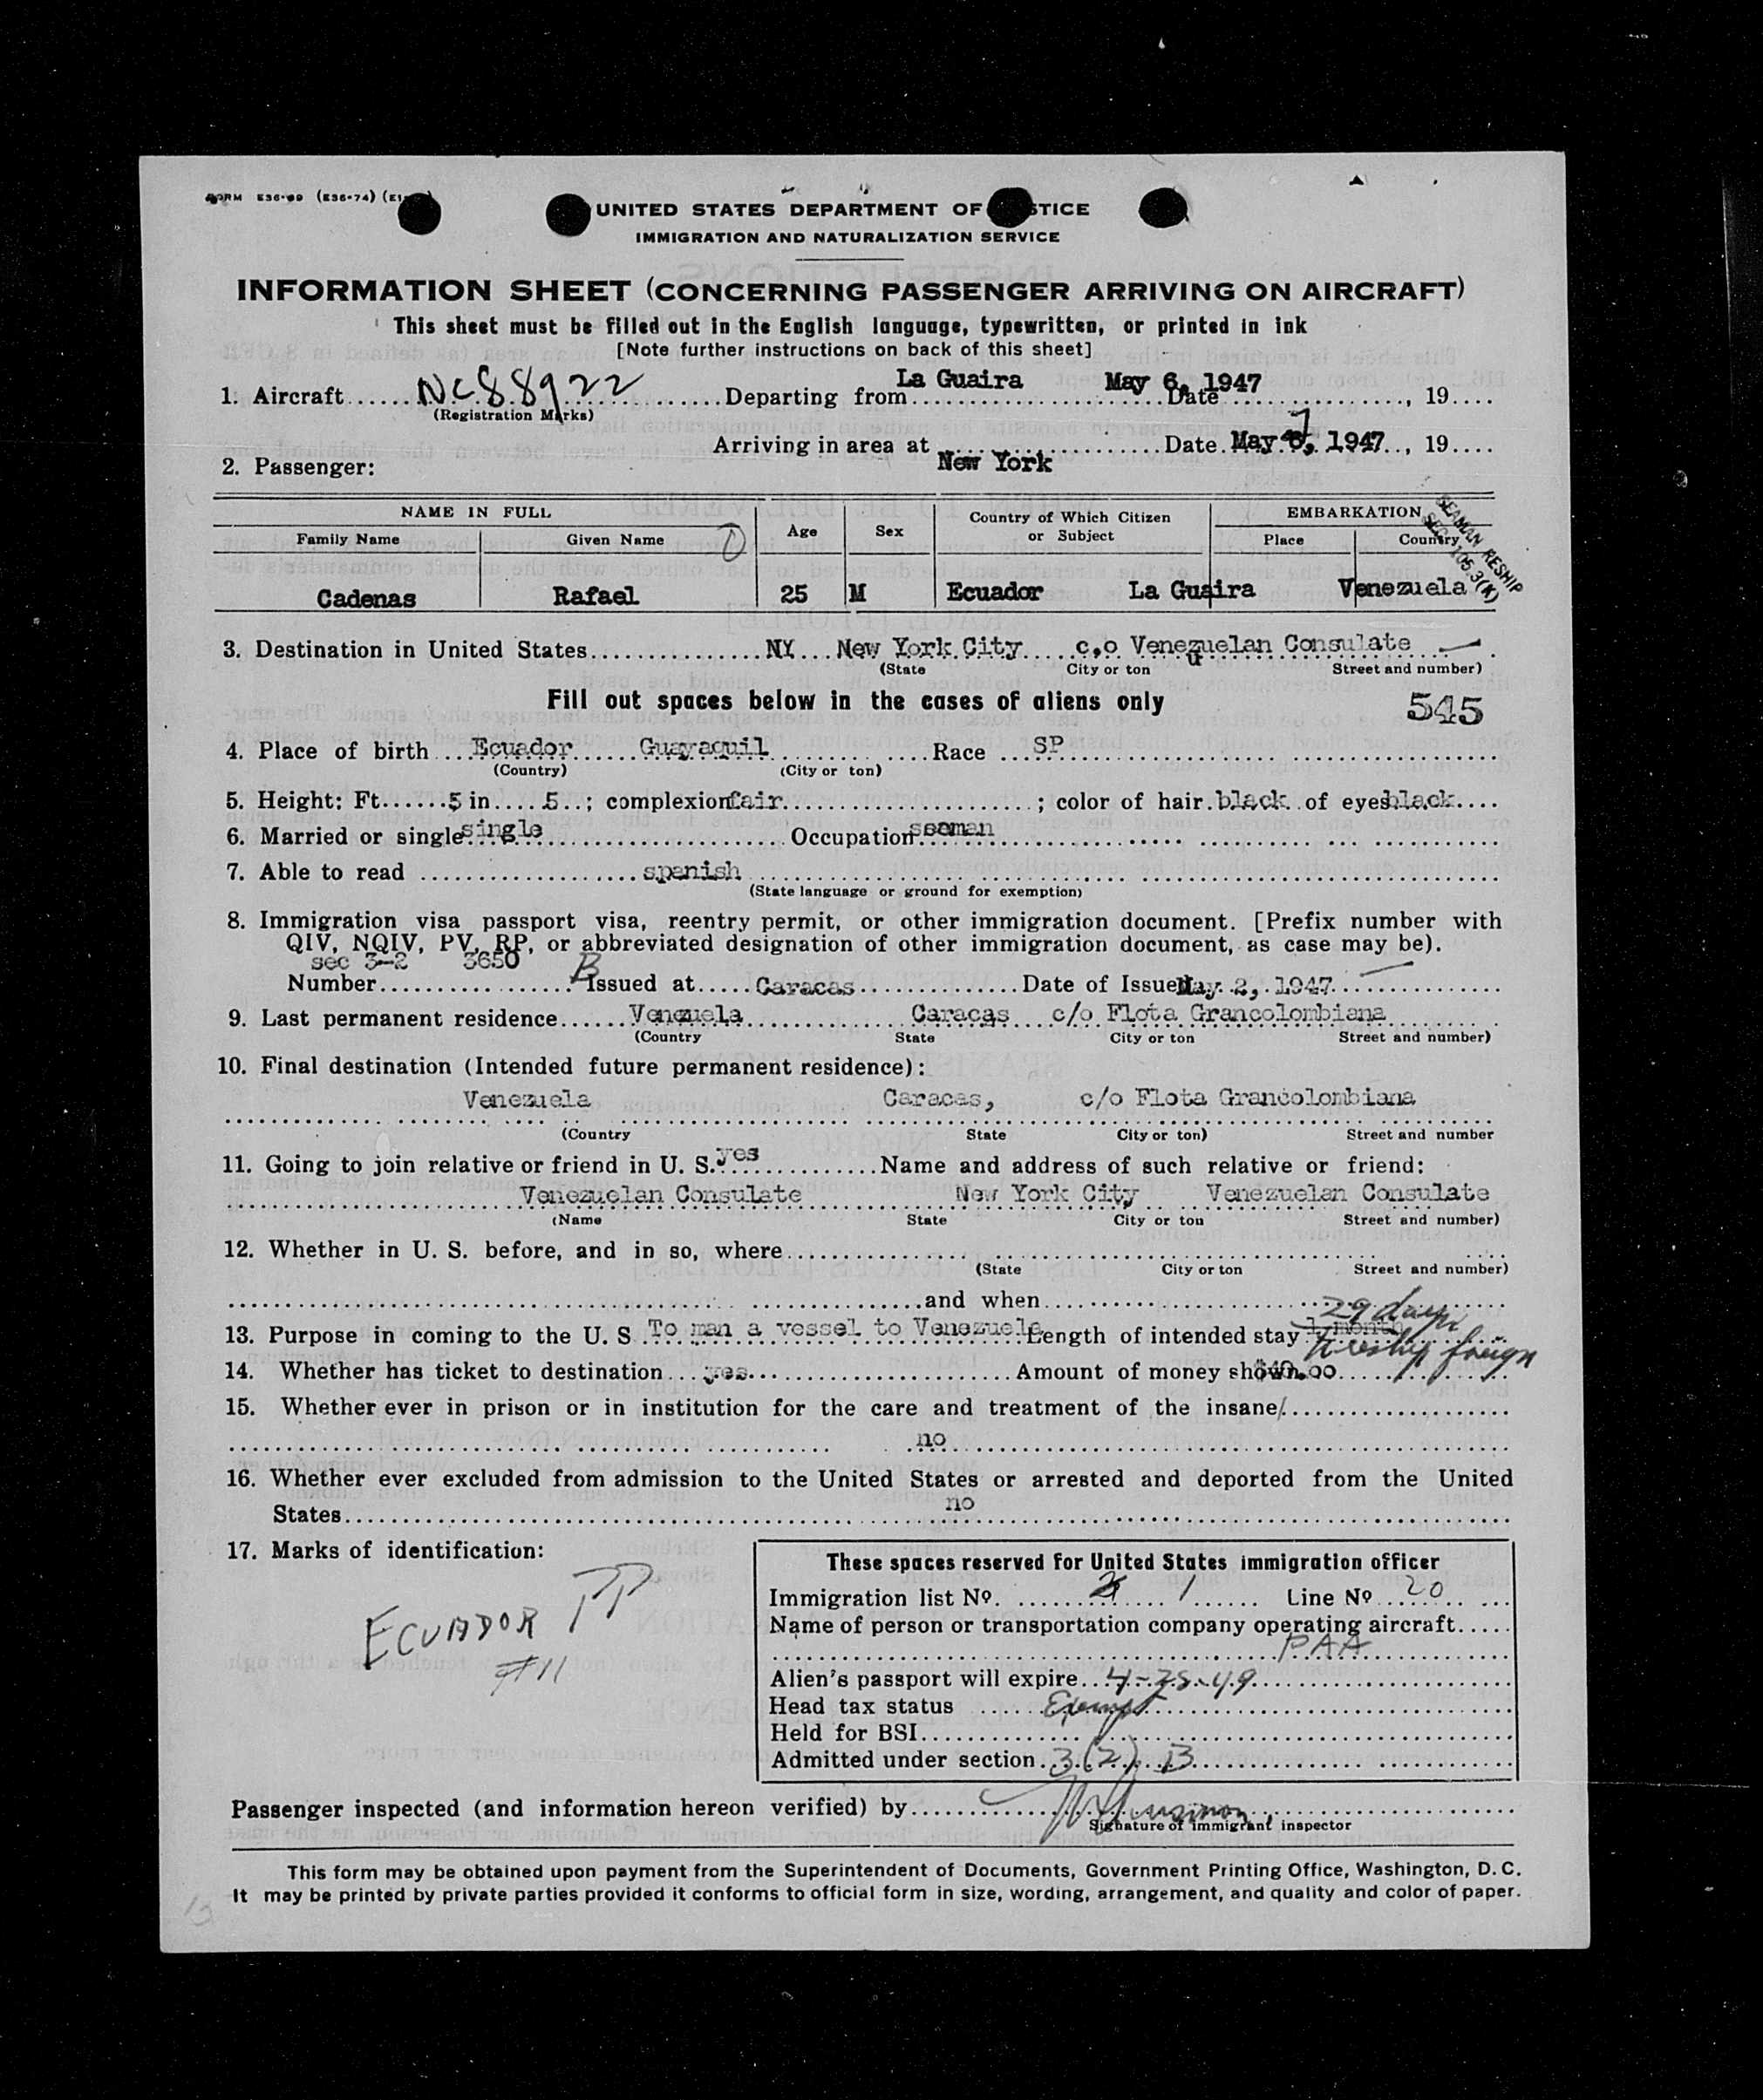 FORM E36-99 (E36-74)
UNITED STATES DEPARTMENT OF JUSTICE
IMMIGRATION AND NATURALIZATION SERVICE
INFORMATION SHEET (CONCERNING PASSENGER ARRIVING ON AIRCRAFT)
This sheet must be filled out in the English language, typewritten, or printed in ink
[Note further instructions on back of this sheet]
1. Aircraft NC88922 Departing from La Guaira Date May 6, 1947, 19
(Registration Marks)
Arriving in area at New York Date May 7, 1947, 19
2. Passenger:
NAME IN FULL Age Sex Country of Which Citizen or Subject EMBARKATION
Family Name Given Name Place Country
SEAMAN RESHIP
SEC 105.3(K)
Cadenas Rafael 25 M Ecuador La Guaira Venezuela
3. Destination in United States NY New York City c.o Venezuelan Consulate
(State City or ton Street and number)
Fill out spaces below in the cases of aliens only 545
4. Place of birth Ecuador Guayaquil Race SP
(Country) (City or ton)
5. Height: Ft. 5 in. 5; complexion fair; color of hair black of eyes black
6. Married or single single Occupation seaman
7. Able to read spanish
(State language or ground for exemption)
8. Immigration visa passport visa, reentry permit, or other immigration document. [Prefix number with
QIV, NQIV, PV, RP, or abbreviated designation of other immigration document, as case may be).
sec 3-2 3650 B
Number Issued at Caracas Date of Issue May 2, 1947
9. Last permanent residence Venezuela Caracas c/o Flota Grancolombiana
(Country State City or ton Street and number)
10. Final destination (Intended future permanent residence):
Venezuela Caracas, c/o Flota Grancolombiana
(Country State City or ton) Street and number
11. Going to join relative or friend in U. S. yes Name and address of such relative or friend:
Venezuelan Consulate New York City Venezuelan Consulate
(Name State City or tou Street and number)
12. Whether in U. S. before, and in so, where
(State City or ton Street and number)
and when
29 days
13. Purpose in coming to the U. S To man a vessel to Venezuela Length of intended stay 1 month
to reship foreign
14. Whether has ticket to destination yes Amount of money shown $40.00
15. Whether ever in prison or in institution for the care and treatment of the insane/
no
16. Whether ever excluded from admission to the United States or arrested and deported from the United
States no
17. Marks of identification:
ECUADOR PP
#11
These spaces reserved for United States immigration officer
Immigration list No. 1 Line No 20
Name of person or transportation company operating aircraft
PAA
Alien's passport will expire 4-28-49
Head tax status Exempt
Held for BSI
Admitted under section 3(2) B
Passenger inspected (and information hereon verified) by
Signature of immigrant inspector
This form may be obtained upon payment from the Superintendent of Documents, Government Printing Office, Washington, D. C.
It may be printed by private parties provided it conforms to official form in size, wording, arrangement, and quality and color of paper.
13